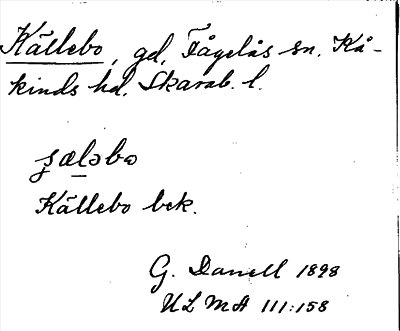 Källebo, gd, Fågelås sn. Kå-
kinds hd. Skarab. l.
Källebo bek.
G. Danell 1898
ULMA 111:158